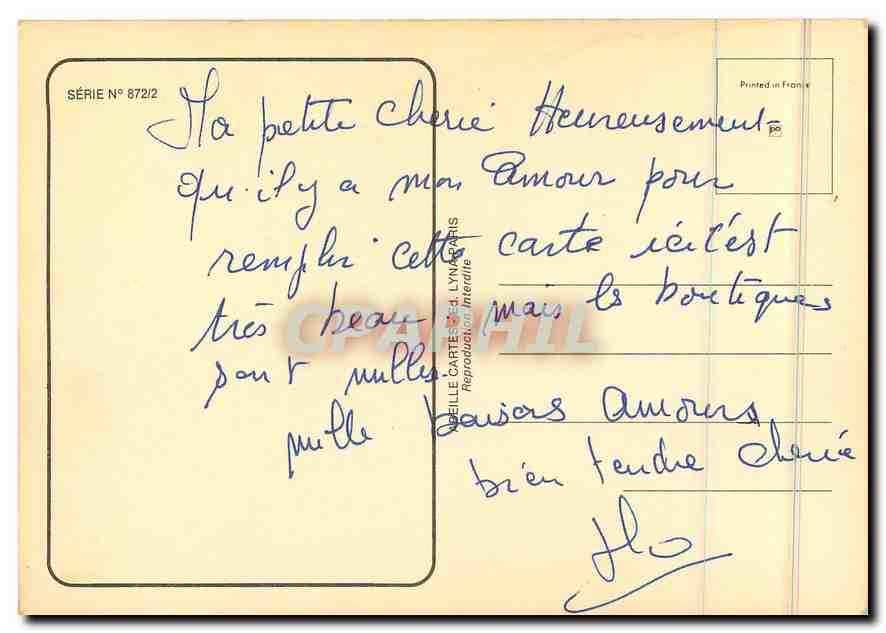 SÉRIE N° 872/2
Printed in France
Ma petite cherie Heureusement
qu'il y a mon Amour pour
remplir cette carte ici c'est
très beau. mais les boutiques
sont nulles.
mille baisers Amours
bien tendre cherie
Flo
ABEILLE CARTES : Ed. LYNA-PARIS
Reproduction Interdite
CPAPHIL